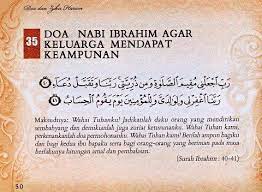 Doa dan Zikir Harian
35
DOA NABI IBRAHIM AGAR
KELUARGA MENDAPAT
KEAMPUNAN
رَبِّ اجْعَلْنِي مُقِيمَ الصَّلَاةِ وَمِن ذُرِّيَّتِي رَبَّنَا وَتَقَبَّلْ دُعَاءِ ۝
رَبَّنَا اغْفِرْ لِي وَلِوَالِدَيَّ وَلِلْمُؤْمِنِينَ يَوْمَ يَقُومُ الْحِسَابُ ۝
Maksudnya: Wahai Tuhanku! Jadikanlah daku orang yang mendirikan
sembahyang dan demikianlah juga zuriat keturunanku. Wahai Tuhan kami,
perkenankanlah doa permohonanku. Wahai Tuhan kami! Berilah ampun bagiku
dan kedua ibu bapaku serta bagi orang-orang yang beriman pada masa
berlakunya hitungan amal dan pembalasan.
(Surah Ibrahim : 40-41)
50